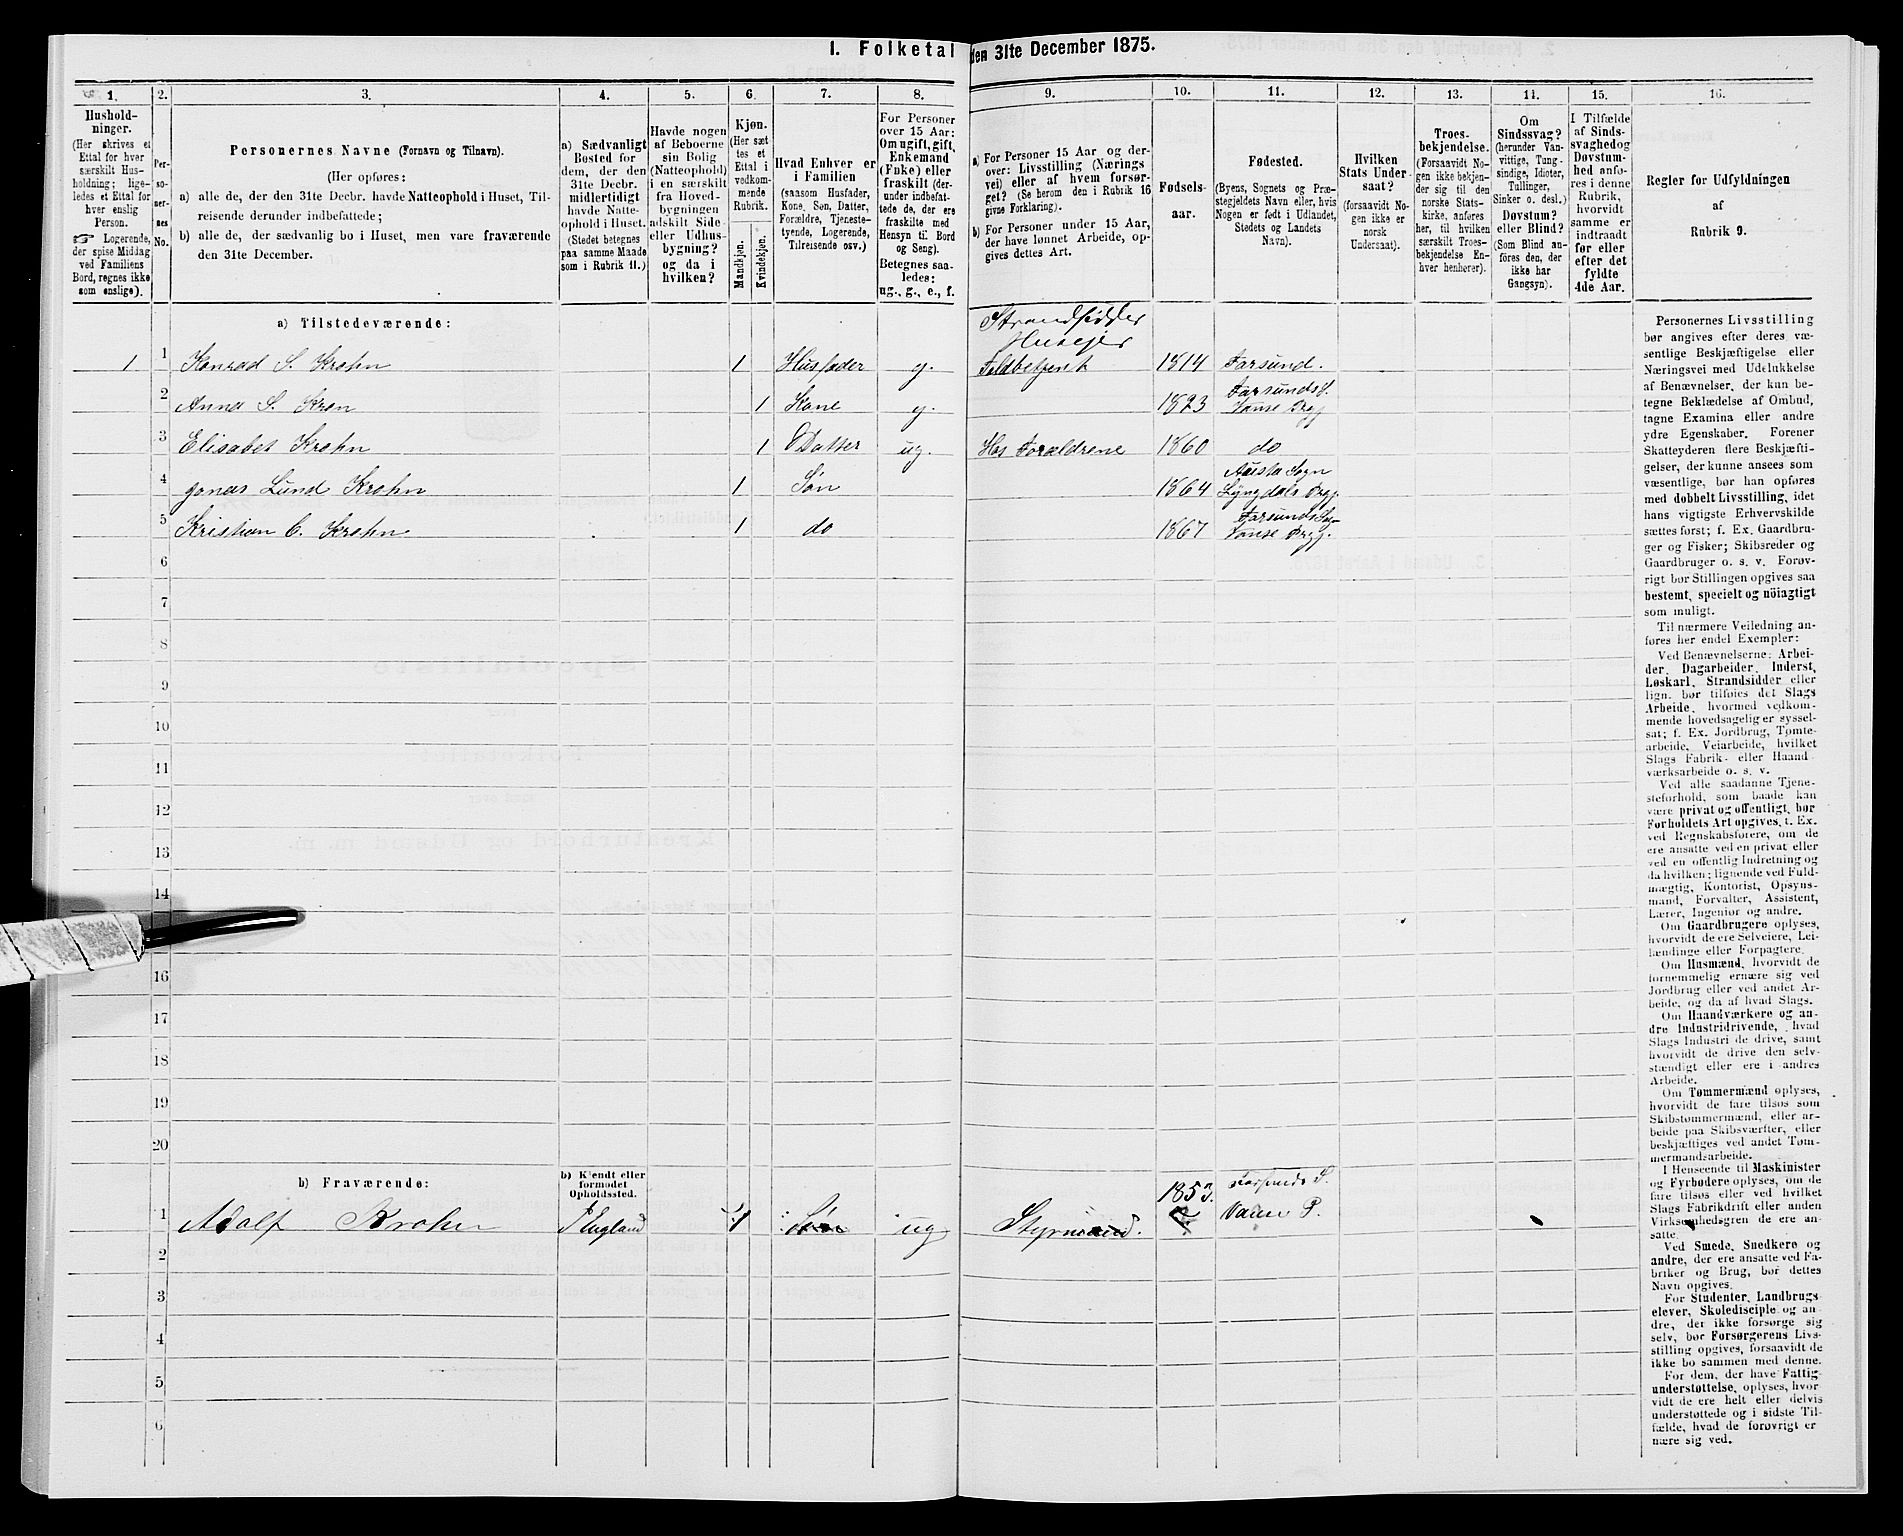 I. Folketal den 31te December 1875.
1.
Hushold-
ninger.
(Her skrives et
Ettal for hver
særskilt Hus-
holdning; lige-
ledes et Ettal for
hver enslig
Person.
☞ Logerende,
der spise Middag
ved Familiens
Bord, regnes ikke
som enslige).
2.
Per-
so-
ner-
nes
No.
3.
Personernes Navne (Fornavn og Tilnavn).
(Her opføres:
a) alle de, der den 31te Decbr. havde Natteophold i Huset, Til-
reisende derunder indbefattede;
b) alle de, der sædvanlig bo i Huset, men vare fraværende
den 31te December.
4.
a) Sædvanligt
Bosted for
dem, der den
31te Decbr.
midlertidigt
havde Natte-
ophold i Huset.
(Stedet betegnes
paa samme Maade
som i Rubrik 11.)
5.
Havde nogen
af Beboerne
sin Bolig
(Natteophold)
i en særskilt
fra Hoved-
bygningen
adskilt Side-
eller Udhus-
bygning?
og da i
hvilken?
6.
Kjøn.
(Her sæt-
tes et
Ettal i
vedkom-
mende
Rubrik.
Mandkjøn.
Kvindekjøn.
7.
Hvad Enhver er
i Familien
(saasom Husfader,
Kone, Søn, Datter,
Forældre, Tjeneste-
tyende, Logerende,
Tilreisende osv.)
8.
For Personer
over 15 Aar:
Om ugift, gift,
Enkemand
(Enke) eller
fraskilt (der-
under indbefat-
tede de, der ere
fraskilte med
Hensyn til Bord
og Seng).
Betegnes saa-
ledes:
ug., g., e., f.
9.
a) For Personer 15 Aar og der-
over: Livsstilling (Nærings
vei) eller af hvem forsør-
get? (Se herom den i Rubrik 16
givne Forklaring).
b) For Personer under 15 Aar,
der have lønnet Arbeide, op-
gives dettes Art.
10.
Fødsels-
aar.
11.
Fødested.
(Byens, Sognets og Præ-
stegjeldets Navn eller, hvis
Nogen er født i Udlandet,
Stedets og Landets
Navn).
12.
Hvilken
Stats Under-
saat?
(forsaavidt No-
gen ikke er
norsk
Undersaat).
13.
Troes-
bekjendelse.
(Forsaavidt No-
gen ikke bekjen-
der sig til den
norske Stats-
kirke, anføres
her, til hvilken
særskilt Troes-
bekjendelse En-
hver henhører).
14.
Om
Sindssvag?
(herunder Van-
vittige, Tung-
sindige, Idioter,
Tullinger,
Sinker o. desl.)
Døvstum?
eller Blind?
(Som Blind an-
føres den, der
ikke har
Gangsyn).
15.
I Tilfælde
af Sinds-
svaghed og
Døvstum-
hed anfø-
res i denne
Rubrik,
hvorvidt
samme er
indtraadt
før eller
efter det
fyldte
4de Aar.
16.
Regler for Udfyldningen
af
Rubrik 9.
a) Tilstedeværende:
Strandsidder
Huseier
1 1 Konrad S. Krohn 1 Husfader g. Toldbetjent 1814 Farsund.
Farsunds S.
2 Anna S. Kron 1 Kone g. 1823 Vanse Prgj
3 Elisabet Krohn 1 Datter ug. Hos Forældrene 1860 do
Austa Sogn
4 Jonas Lund Krohn 1 Søn 1864 Lyngdals Prgj.
Farsunds Sogn
5 Kristian C. Krohn 1 do 1867 Vanse Prgj.
6
7
8
9
10
11
12
13
14
16
17
18
19
20
b) Fraværende:
b) Kjendt eller
formodet
Opholdssted.
1853. Farsunds S.
1 Adolf Krohn I England 1 Søn ug Styrmand. Vanse P.
2
3
4
5
6
Personernes Livsstilling
bør angives efter deres væ-
sentlige Beskjæftigelse eller
Næringsvei med Udelukkelse
af Benævnelser, der kun be-
tegne Beklædelse af Ombud,
tagne Examina eller andre
ydre Egenskaber. Forener
Skatteyderen flere Beskjæfti-
gelser, der kunne ansees som
væsentlige, bør han opføres
med dobbelt Livsstilling, idet
hans vigtigste Erhvervskilde
sættes først; f. Ex. Gaardbru-
ger og Fisker; Skibsreder og
Gaardbruger o. s. v. Forøv-
rigt bør Stillingen opgives saa
bestemt, specielt og nöiagtigt
som muligt.
Til nærmere Veiledning an-
føres her endel Exempler:
Ved Benævnelserne: Arbei-
der, Dagarbeider, Inderst,
Løskarl, Strandsidder eller
lign. bør tilføies det Slags
Arbeide, hvormed vedkom-
mende hovedsagelig er syssel-
sat; f. Ex. Jordbrug, Tømte-
arbeide, Veiarbeide, hvilket
Slags Fabrik- eller Haand
værksarbeide o. s. v.
Ved alle saadanne Tjene-
steforhold, som baade kan
være privat og offentligt, bør
Forholdets Art opgives, f. Ex.
ved Regnskabsførere, om de
ere ansatte ved en privat eller
ved en offentlig Indretning og
da hvilken; lignende ved Fuld-
mægtig, Kontorist, Opsyns-
mand, Forvalter, Assistent,
Lærer, Ingeniør og andre.
Om Gaardbrugere oplyses,
hvorvidt de ere Selveiere, Lei-
lændinge eller Forpagtere.
Om Husmænd, hvorvidt de
fornemmelig ernære sig ved
Jordbrug eller ved andet Ar-
beide, og da af hvad Slags.
Om Haandværkere og an-
dre Industridrivende, hvad
Slags Industri de drive, samt
hvorvidt de drive den selv-
stændigt eller ere i andres
Arbeide.
Om Tømmermænd oplyses,
hvorvidt de fare tilsøs som
Skibstømmermænd, eller ar-
beide paa Skibsværfter, eller
beskjæftiges ved andet Tøm-
mermandsarbeide.
I Henseende til Maskinister
og Fyrbødere oplyses, om de
fare tilsøs eller ved hvilket
Slags Fabrikdrift eller anden
Virksomhedsgren de ere an-
satte.
Ved Smede, Snedkere og
andre, der ere ansatte ved Fa-
briker og Brug, bør dettes
Navn opgives.
For Studenter, Landbrugs
elever, Skoledisciple og an-
dre, der ikke forsørge sig
selv, bør Forsørgerens Livs-
stilling opgives, forsaavidt de
ikke bo sammen med denne.
For dem, der have Fattig-
understøttelse, oplyses, hvor-
vidt de ere helt eller delvis
understøttede og i sidste Til-
fælde, hvad de forøvrigt er
nære sig ved.